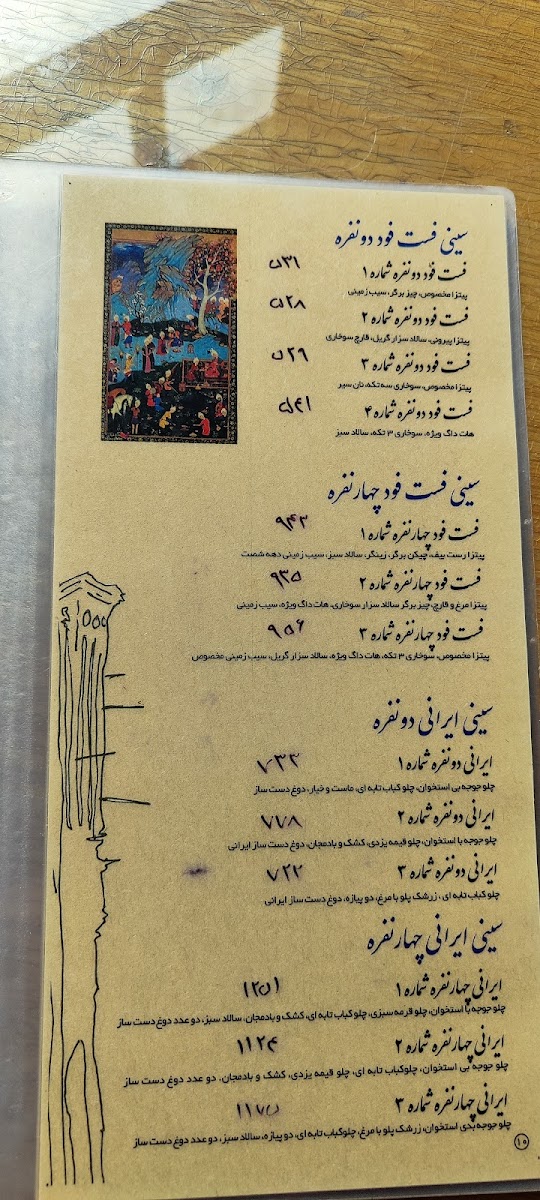 سینی فست فود دونفره
فست فود دونفره شماره ۱ ۵۳۱
پیتزا مخصوص، چیز برگر، سیب زمینی
فست فود دونفره شماره ۲ ۵۲۸
پیتزا پپرونی، سالاد سزار گریل، قارچ سوخاری
فست فود دونفره شماره ۳ ۵۲۹
پیتزا مخصوص، سوخاری سه تکه، نان سیر
فست فود دونفره شماره ۴ ۵۴۱
هات داگ ویژه، سوخاری ۳ تکه، سالاد سبز
سینی فست فود چهارنفره
فست فود چهارنفره شماره ۱ ۹۴۳
پیتزا رست بیف، چیکن برگر، زینگر، سالاد سبز، سیب زمینی دهه شصت
فست فود چهارنفره شماره ۲ ۹۳۵
پیتزا مرغ و قارچ، چیز برگر سالاد سزار سوخاری، هات داگ ویژه، سیب زمینی
فست فود چهارنفره شماره ۳ ۹۵۶
پیتزا مخصوص، سوخاری ۳ تکه، هات داگ ویژه، سالاد سزار گریل، سیب زمینی مخصوص
سینی ایرانی دونفره
ایرانی دونفره شماره ۱ ۷۳۳
چلو جوجه بی استخوان، چلو کباب تابه ای، ماست و خیار، دوغ دست ساز
ایرانی دونفره شماره ۲ ۷۷۸
چلو جوجه با استخوان، چلو قیمه یزدی، کشک و بادمجان، دوغ دست ساز ایرانی
ایرانی دونفره شماره ۳ ۷۲۲
چلو کباب تابه ای ، زرشک پلو با مرغ، دو پیازه، دوغ دست ساز ایرانی
سینی ایرانی چهارنفره
ایرانی چهارنفره شماره ۱ ۱۲۵۱
چلو جوجه با استخوان، چلو قرمه سبزی، چلو کباب تابه ای، کشک و بادمجان، سالاد سبز، دو عدد دوغ دست ساز
ایرانی چهارنفره شماره ۲ ۱۱۲۴
چلو جوجه بی استخوان، چلوکباب تابه ای، چلو قیمه یزدی، کشک و بادمجان، دو عدد دوغ دست ساز
ایرانی چهارنفره شماره ۳ ۱۱۷۵
چلو جوجه بدی استخوان، زرشک پلو با مرغ، چلوکباب تابه ای، دو پیازه، سالاد سبز، دو عدد دوغ دست ساز
۱۰